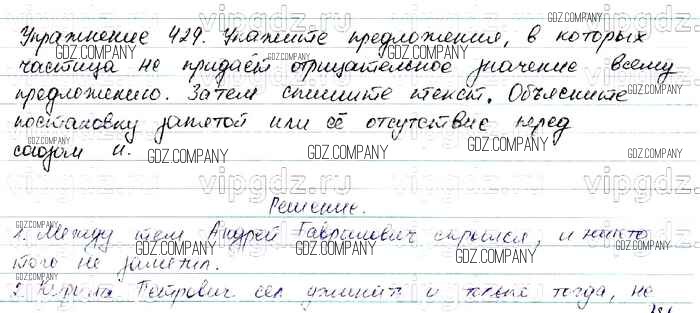 Упражнение 429. Укажите предложения, в которых
частица не придаёт отрицательное значение всему
предложению. Затем спишите текст. Объясните
постановку запятой или её отсутствие перед
союзом и.
Решение.
1. Между тем Андрей Гаврилович скрылся, и никто
того не заметил.
2. Кирила Петрович сел ужинать и только тогда, не